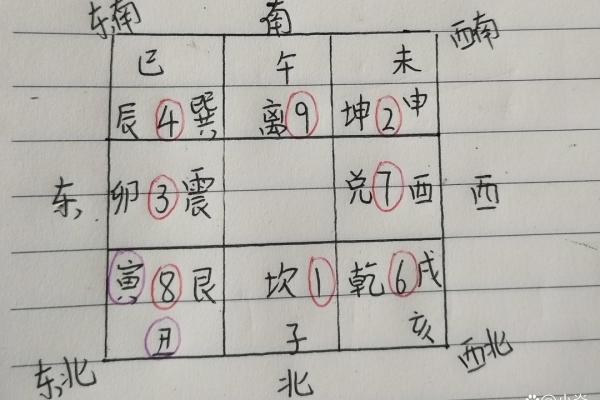 东南 南 西南
巳 午 未
辰 4 巽 离 9 坤 2 申
东 卯 3 震 兑 7 酉 西
寅 8 艮 坎 1 乾 6 戌
丑 子 亥
东北 北 西北